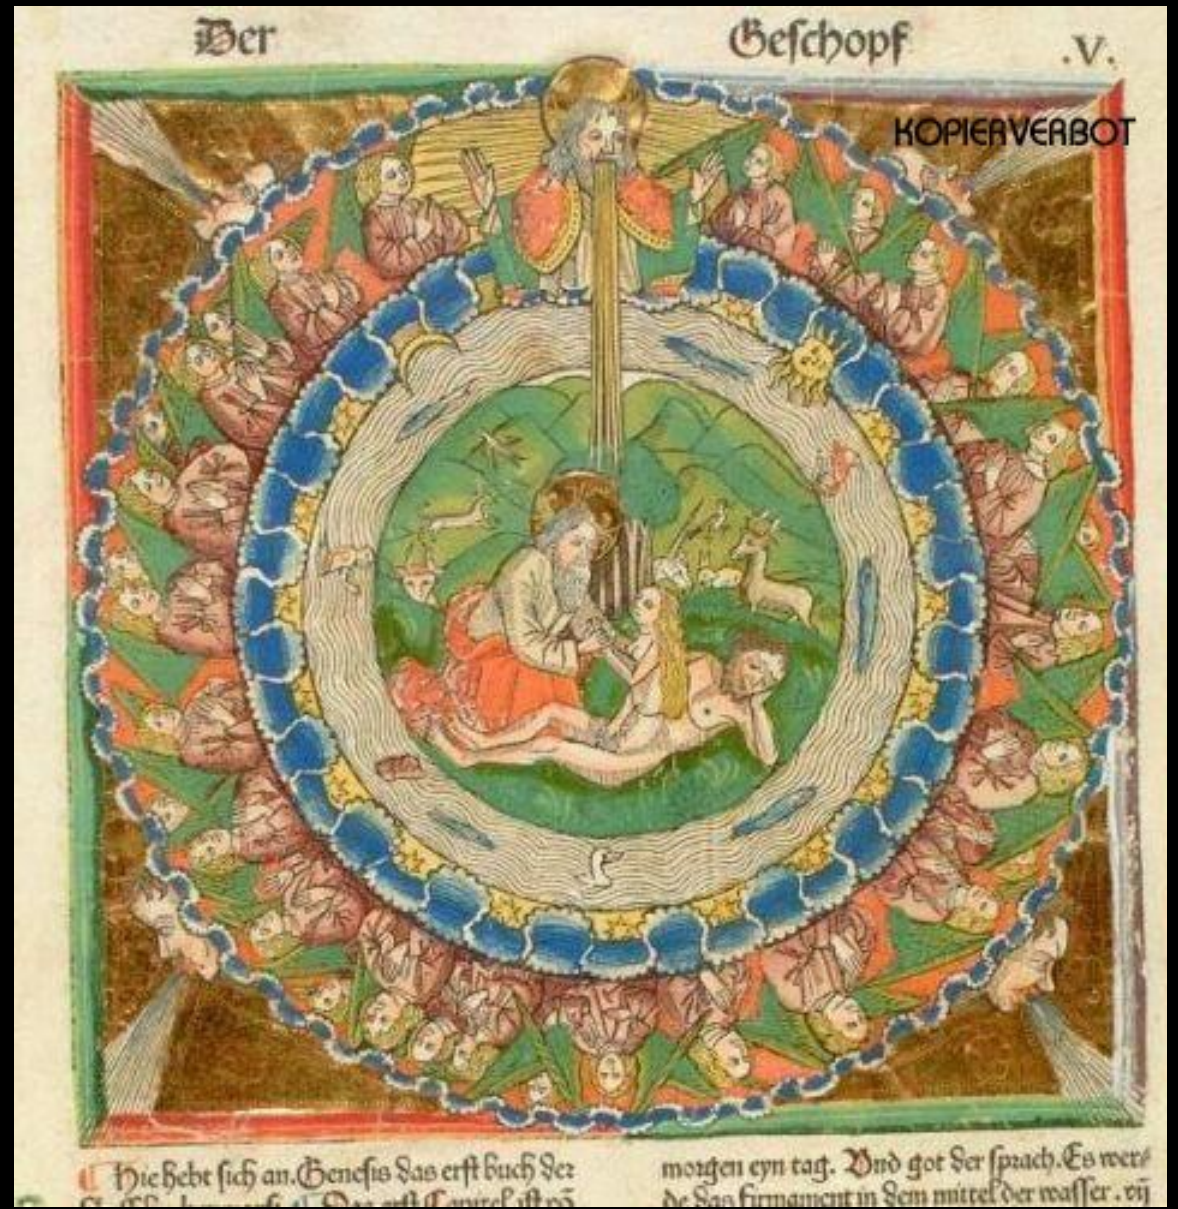 Der Geschopf .V.
KOPIERVERBOT
Hie hebt sich an. Genesis das erst buch der
morgen eyn tag. Vnd got der sprach. Es wer⸗
de das firmament in dem mittel der wasser . vn̄